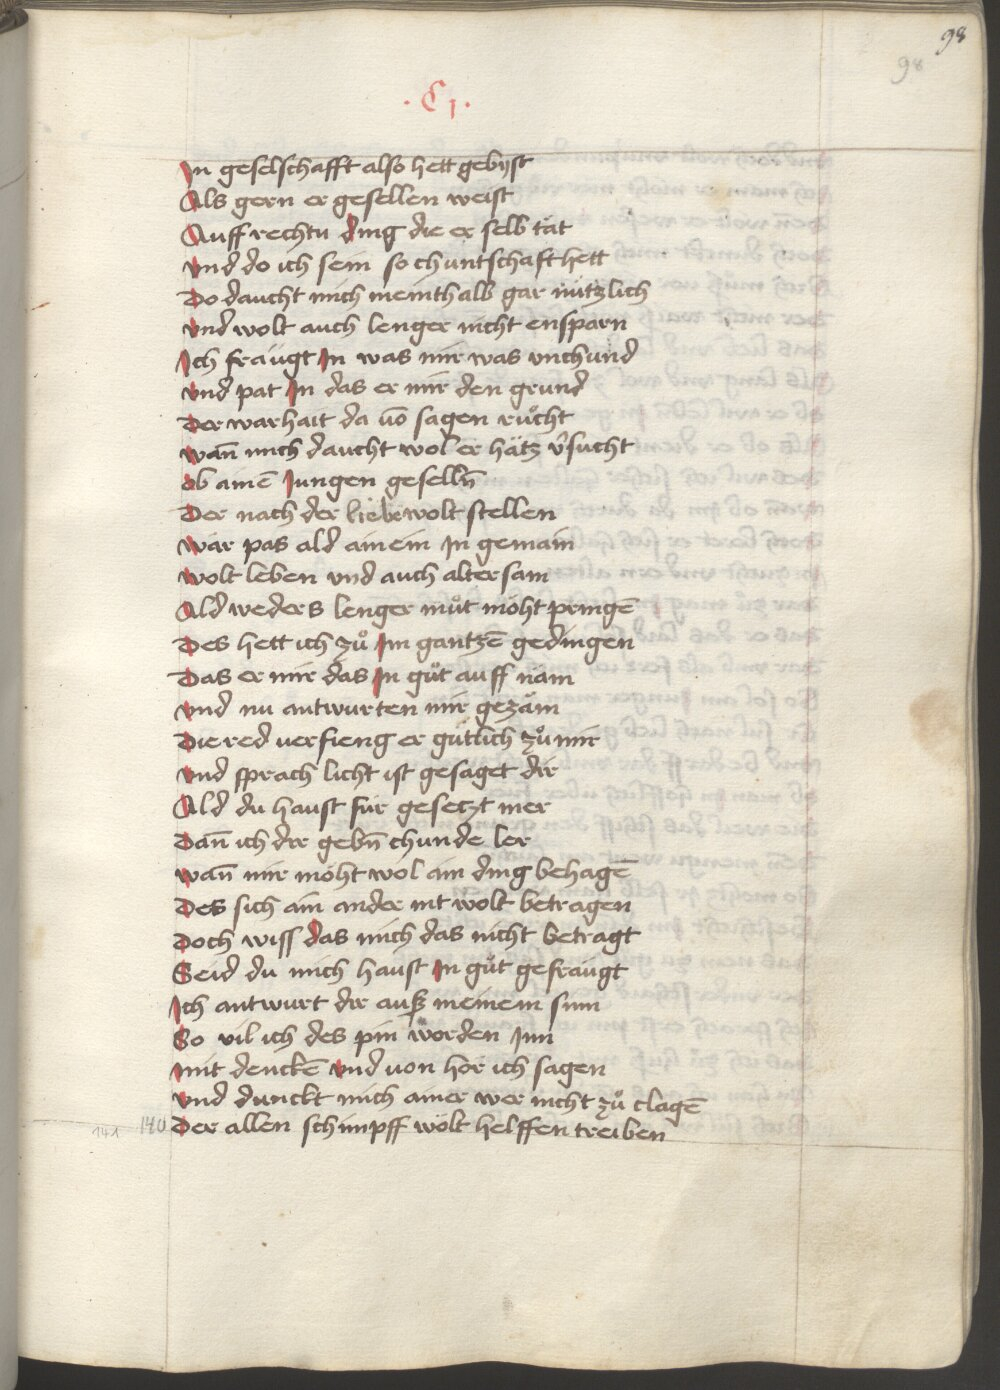 98
98
· C j ·
In geselschafft also hett gebyst
Als gern er gesellen weist
Auff rechtu ding die er selb tät
vnd do ich sein so chuntschaft hett
Do daucht mich meinthalb gar nützlich
vnd wolt auch lenger nicht ensparn
Ich fräugt In was mir was vnchund
vnd pat In das er mir den grund
Der warhait da uō sagen růcht
wañ mich daucht wol er hätz v̄sucht
ob ainē Jungen geselln̄
Der nach der liebe wolt stellen
wär pas ald ainem In gemain
wolt leben vnd auch altersam
Ald weders lenger můt möht pringē
Des hett ich zů Im gantzē gedingen
Das er mir das In gůt auff näm
vnd nu antwurten mir gezäm
Die red uerfieng er gütlich zů mir
vnd sprach licht ist gesaget dir
Ald du haust für gesetzt mer
Dañ ich dir gebn̄ chunde ler
wañ mir möht wol ain ding behagē
Des sich ain ander nit wolt betragen
Doch wiss das mich das nicht betragt
Seid du mich haust In gůt gefräugt
Ich antwurt dir auß meinem sinn
So uil ich des pin worden Inn
mit denckē vnd uon hör ich sagen
vnd dunckt mich ainer wer nicht zů clagē
141 140 Der allen schimpff wölt helffen treiben